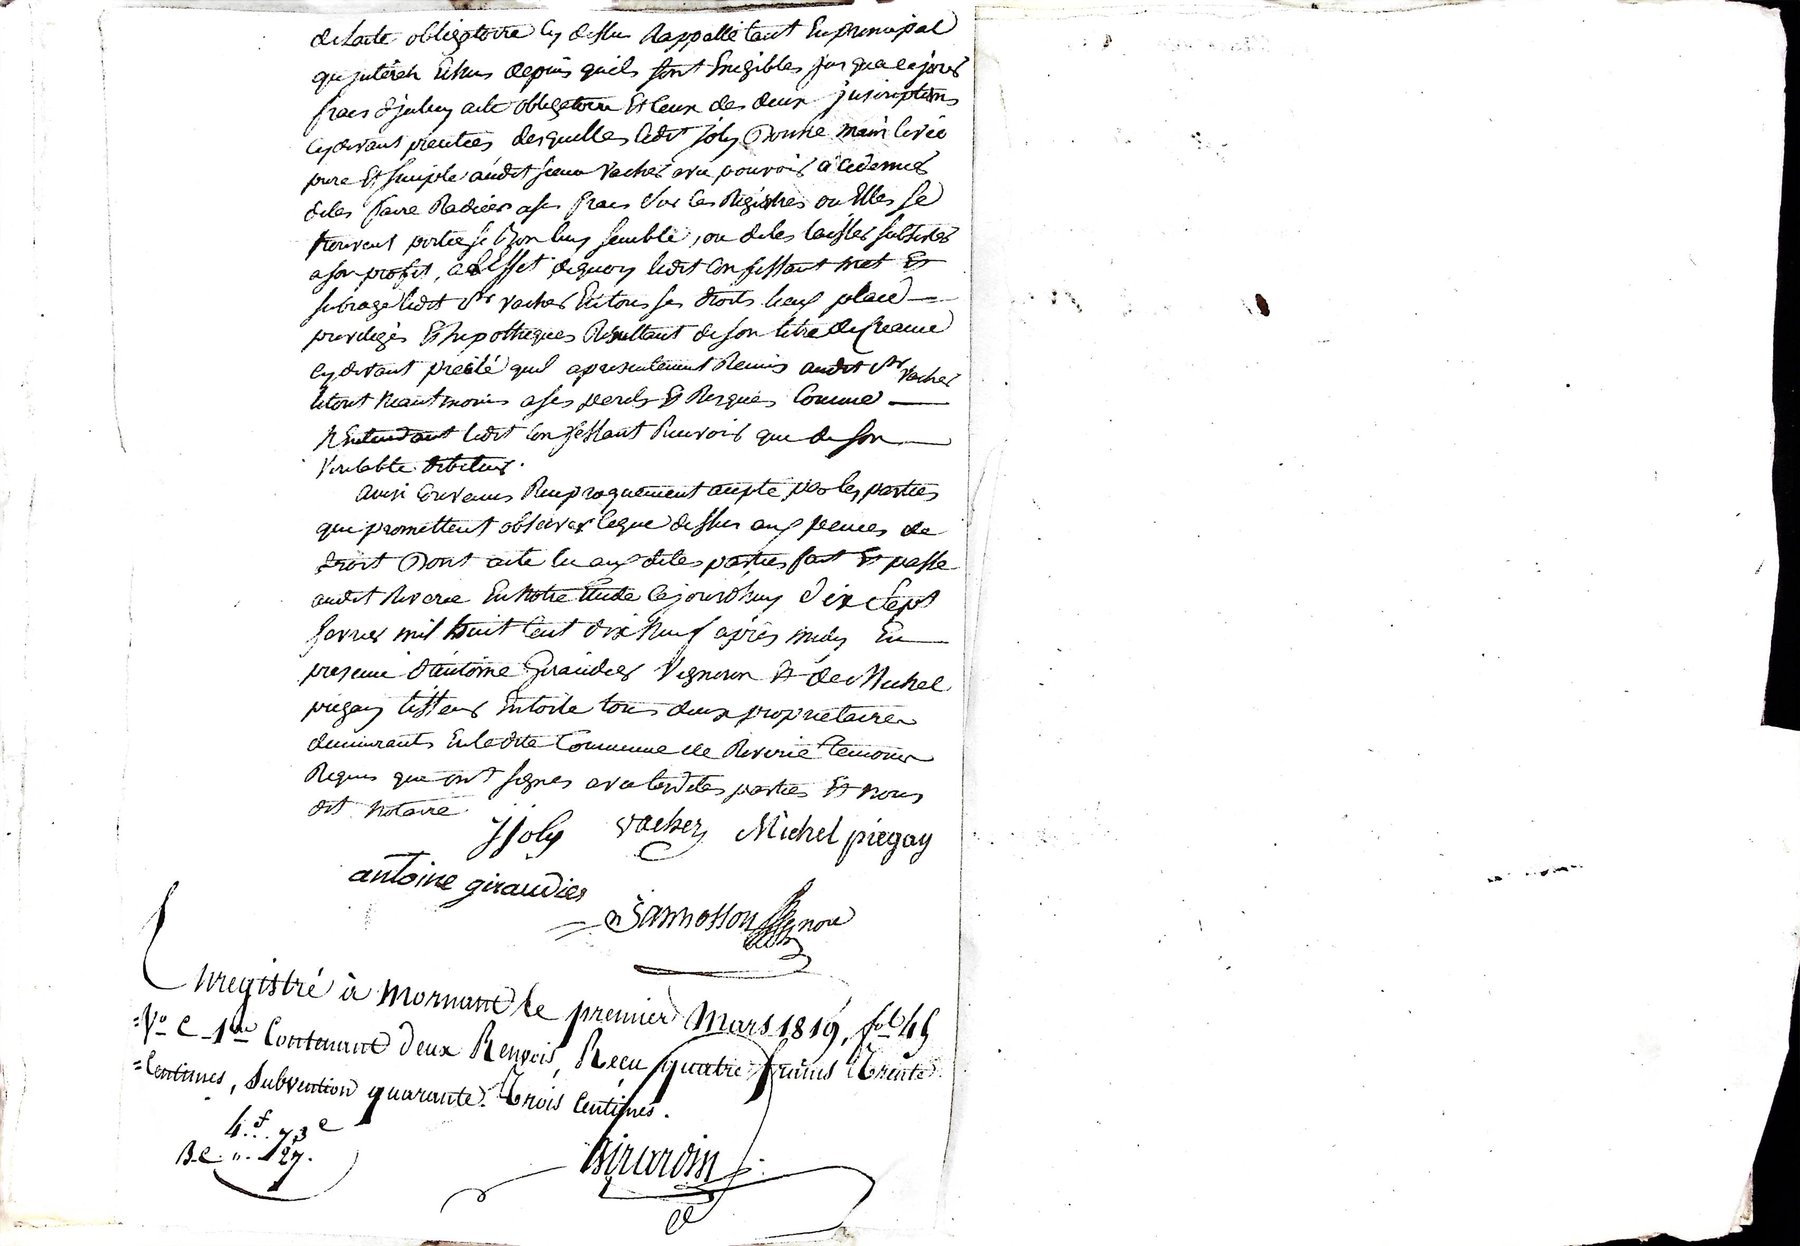 de lacte obligatoire cy dessus Rappellé tant En principal
qu'jnterets Echus depuis quils sont Exigibles jus qua ce jour
frais d'jceluy acte obligatoire Et Ceux des deux juscriptions
cydevant precitées desquelles ledit joly Donne main levée
pure Et simple audit sieur vacher avec pouvoir a ce dernier
deles faire Radier a ses frais sur les Registres ou Elles se
trouvent portées si Bon luy semble, ou deles laisser subsister
a son profit, a l'Effet dequoy ledit Confessant met Et
subroge ledit Sr vacher En tous ses droits lieux place
privileges Et hypotheques Resultant de son titre de Creance
cydevant precité quil a presentement Remis audit Sr vacher
letout Neantmoins a ses perils Et Risques Comme
N'Entendant ledit Confessant Recevoir que de son
veritable debiteur.
ainsi Convenus Reciproquement accepté par les parties
que promettent observer ceque dessus aux peines de
droit Dont acte lu aux dites parties fait Et passé
audit Riverie En Notre Etude Cejourd'huy Dix sept
fevrier mil huit Cent dix Neuf après midy En
presence d'antoine Giraudier Vigneron Et de Michel
piegay tisseur En toile tous deux proprietaires
demeurants En ladite Commune de Riverie temoins
Requis que ont signes avec lesdites parties Et nous
dit Notaire.
jjoly vacher Michel piegay
antoine giraudier
Enregistré à Mornant le premier Mars 1819, fol 45
Vo C 1re Contenant Deux Renvois, Recu quatre francs Trente
Centimes, Subvention quarante-Trois Centimes.
4.f.. 73c
B.C. ".. 27.
Girardin